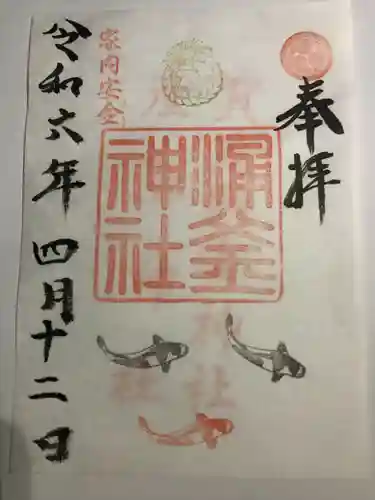 奉拝
涌釜神社
家内安全
令和六年四月十二日